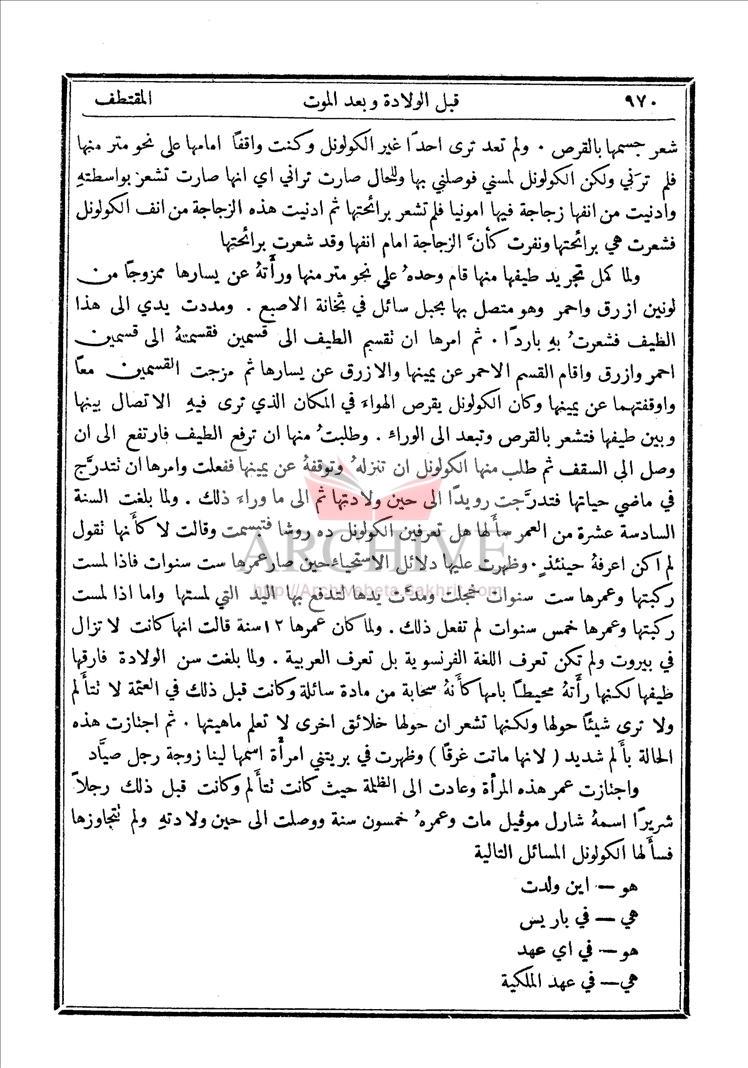 ٩٧٠ قبل الولادة وبعد الموت المقتطف
شعر جسمها بالقرص ٠ ولم تعد ترى احدًا غير الكولونل وكنت واقفًا امامها على نحو متر منها
فلم ترَني ولكن الكولونل لمسني فوصلني بها وللحال صارت تراني اي انها صارت تشعر بواسطتهِ
وادنيت من انفها زجاجة فيها امونيا فلم تشعر برائحتها ثم ادنيت هذه الزجاجة من انف الكولونل
فشعرت هي برائحتها ونفرت كأنَّ الزجاجة امام انفها وقد شعرت برائحتها
ولما كمل تجريد طيفها منها قام وحدهُ على نحو متر منها ورأَتهُ عن يسارها ممزوجًا من
لونين ازرق واحمر وهو متصل بها بحبل سائل في ثخانة الاصبع . ومددت يدي الى هذا
الطيف فشعرتُ بهِ باردًا ٠ ثم امرها ان تقسيم الطيف الى قسمين فقسمتهُ الى قسمين
احمر وازرق واقام القسم الاحمر عن يمينها والازرق عن يسارها ثم مزجت القسمين معًا
واوقفتهما عن يمينها وكان الكولونل يقرص الهواء في المكان الذي ترى فيهِ الاتصال بينها
وبين طيفها فتشعر بالقرص وتبعد الى الوراء . وطلبتُ منها ان ترفع الطيف فارتفع الى ان
وصل الى السقف ثم طلب منها الكولونل ان تنزلهُ وتوقفهُ عن يمينها ففعلت وامرها ان تتدرَّج
في ماضي حياتها فتدرَّجت رويدًا الى حين ولادتها ثم الى ما وراء ذلك . ولما بلغت السنة
السادسة عشرة من العمر سأَلها هل تعرفين الكولونل ده روشا فتبسمت وقالت لا كأَنها تقول
لم اكن اعرفهُ حينئذٍ ٠ وظهرت عليها دلائل الاستحياء حين صار عمرها ست سنوات فاذا لمست
ركبتها وعمرها ست سنوات خجلت ومدَّت يدها لتدفع بها اليد التي لمستها واما اذا لمست
ركبتها وعمرها خمس سنوات لم تفعل ذلك . ولما كان عمرها ١٢ سنة قالت انها كانت لا تزال
في بيروت ولم تكن تعرف اللغة الفرنسوية بل تعرف العربية . ولما بلغت سن الولادة فارقها
طيفها لكنها رأَتهُ محيطًا بامها كأَنهُ سحابة من مادة سائلة وكانت قبل ذلك في العتمة لا تتأَلم
ولا ترى شيئًا حولها ولكنها تشعر ان حولها خلائق اخرى لا تعلم ماهيتها ٠ ثم اجتازت هذه
الحالة بأَلم شديد ( لانها ماتت غرقًا ) وظهرت في بريتني امرأَة اسمها لينا زوجة رجل صيَّاد
واجتازت عمر هذه المرأة وعادت الى الظلمة حيث كانت تتأَلم وكانت قبل ذلك رجلاً
شريرًا اسمهُ شارل موڤيل مات وعمرهُ خمسون سنة ووصلت الى حين ولادتهِ ولم تتجاوزها
فسأَلها الكولونل المسائل التالية
هو — اين ولدت
هي — في باريس
هو — في اي عهد
هي — في عهد الملكية
ARCHIVE
http://Archivebeta.Sakhrit.com